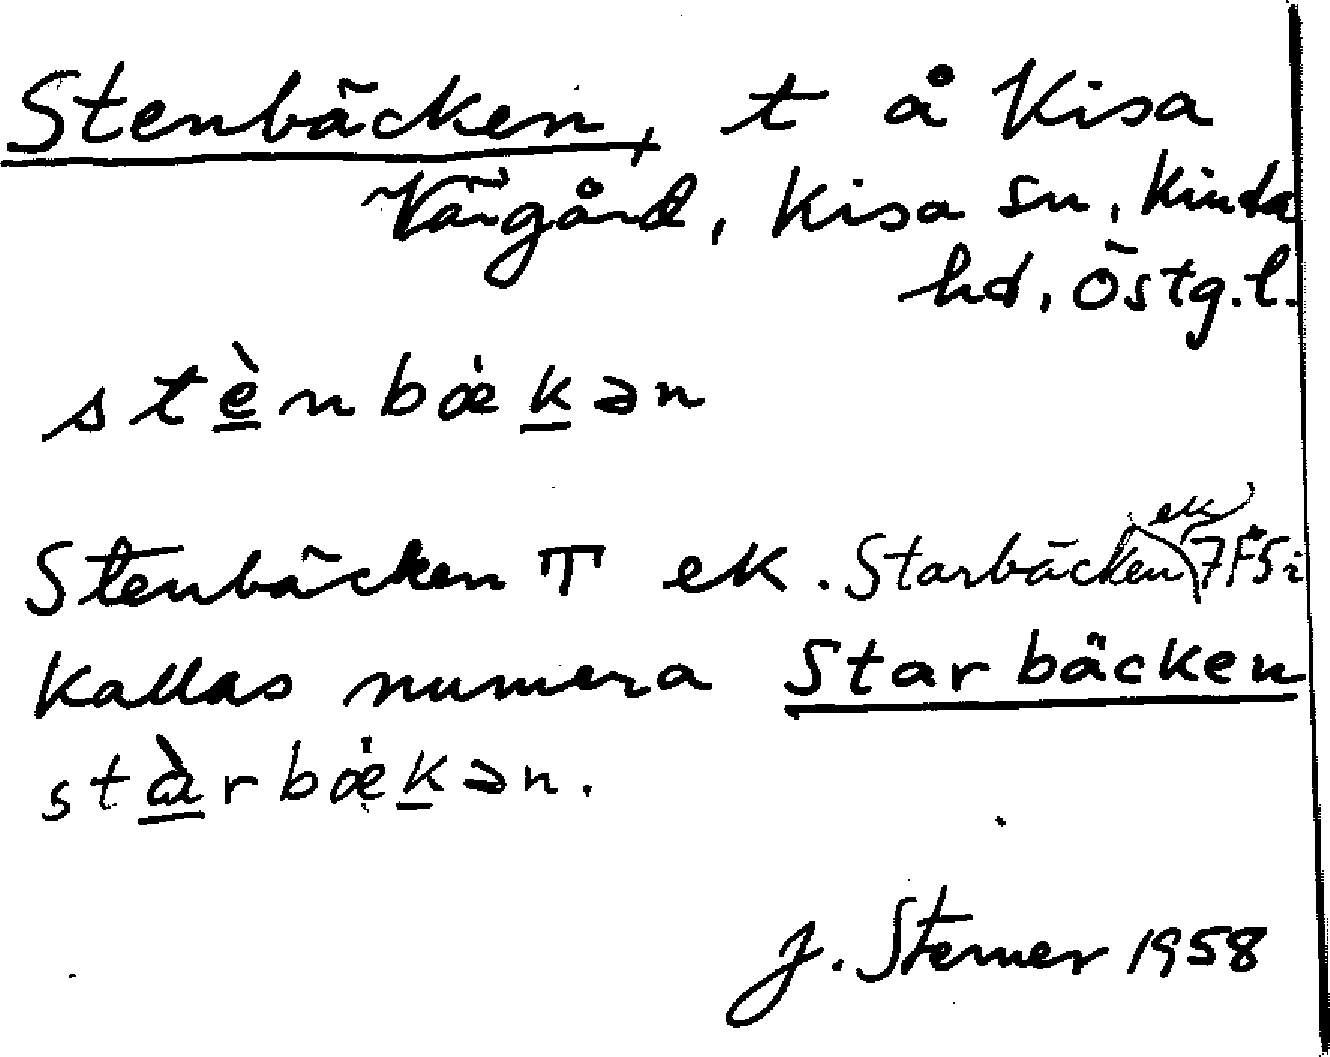 Stenbäcken, t å Kisa
Värgård, Kisa sn, Kinda
hd, Östg.l.
stènbǽkən
Stenbäcken T ek. Starbäcken ek 7F5i
kallas numera Starbäcken
stàrbǽkən.
J. Sterner 1958